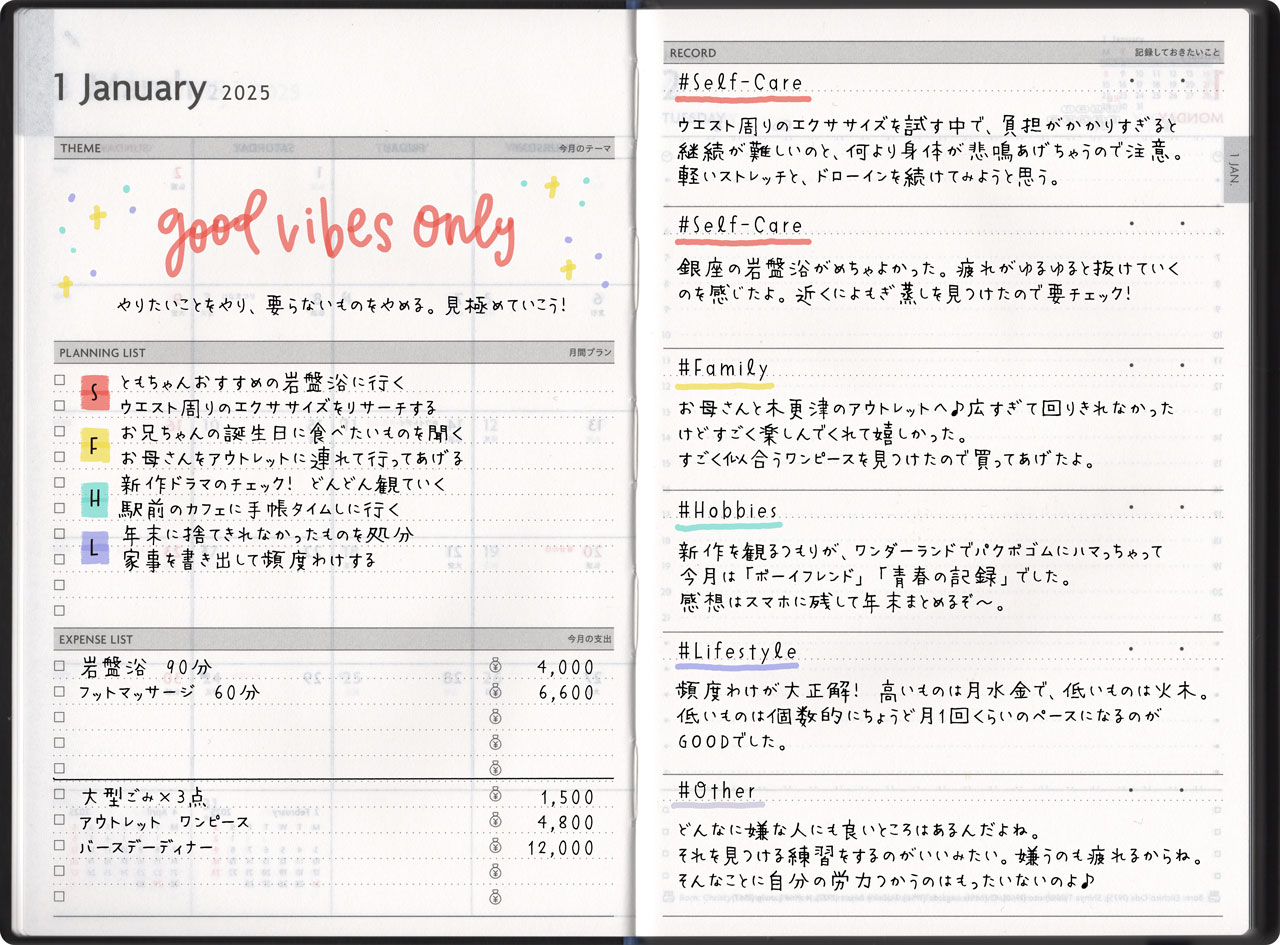 1 January 2025
THEME 今月のテーマ
good vibes only
やりたいことをやり、要らないものをやめる。見極めていこう!
PLANNING LIST 月間プラン
S ともちゃんおすすめの岩盤浴に行く
ウエスト周りのエクササイズをリサーチする
F お兄ちゃんの誕生日に食べたいものを聞く
お母さんをアウトレットに連れて行ってあげる
H 新作ドラマのチェック! どんどん観ていく
駅前のカフェに手帳タイムしに行く
L 年末に捨てきれなかったものを処分
家事を書き出して頻度わけする
EXPENSE LIST 今月の支出
岩盤浴 90分 4,000
フットマッサージ 60分 6,600
大型ごみ×3点 1,500
アウトレット ワンピース 4,800
バースデーディナー 12,000
RECORD 記録しておきたいこと
#Self-Care
ウエスト周りのエクササイズを試す中で、負担がかかりすぎると
継続が難しいのと、何より身体が悲鳴あげちゃうので注意。
軽いストレッチと、ドローインを続けてみようと思う。
#Self-Care
銀座の岩盤浴がめちゃよかった。疲れがゆるゆると抜けていく
のを感じたよ。近くによもぎ蒸しを見つけたので要チェック!
#Family
お母さんと木更津のアウトレットへ♪広すぎて回りきれなかった
けどすごく楽しんでくれて嬉しかった。
すごく似合うワンピースを見つけたので買ってあげたよ。
#Hobbies
新作を観るつもりが、ワンダーランドでパクボゴムにハマっちゃって
今月は「ボーイフレンド」「青春の記録」でした。
感想はスマホに残して年末まとめるぞ〜。
#Lifestyle
頻度わけが大正解! 高いものは月水金で、低いものは火木。
低いものは個数的にちょうど月1回くらいのペースになるのが
GOODでした。
#Other
どんなに嫌な人にも良いところはあるんだよね。
それを見つける練習をするのがいいみたい。嫌うのも疲れるからね。
そんなことに自分の労力つかうのはもったいないのよ♪
1 JAN.